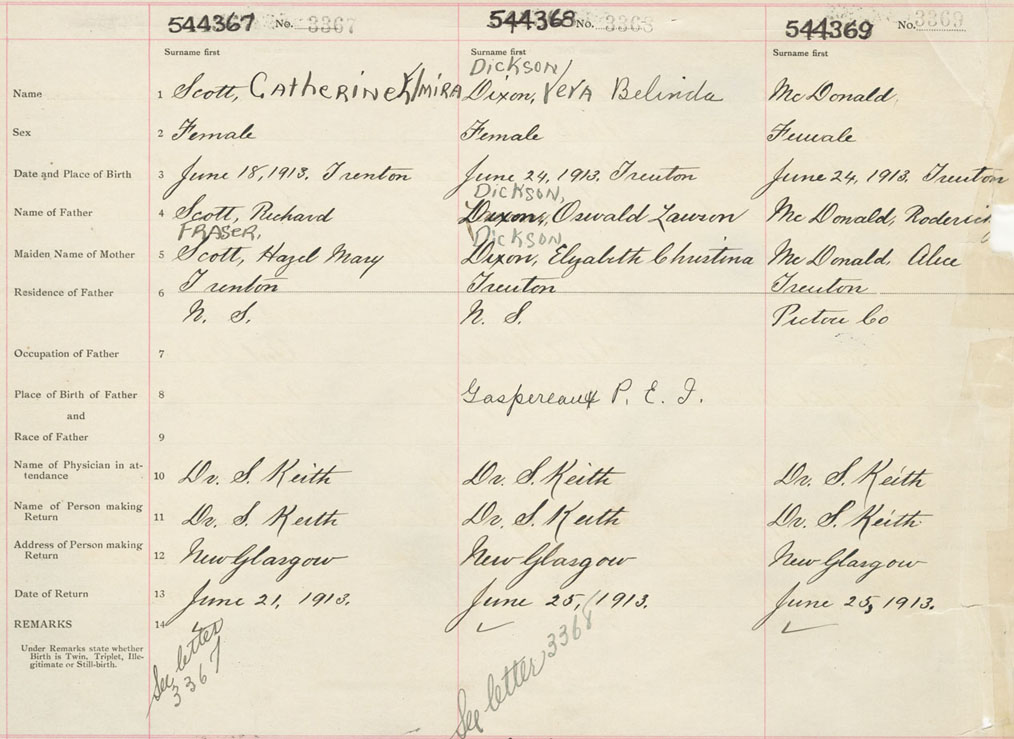 544367 No. 3367 544368 No. 3368 544369 No. 3369
Surname first Surname first Surname first
DICKSON
Name 1 Scott, CatHERINE ElMIRA Dixon, VERA Belinda McDonald
Sex 2 Female Female Female
Date and Place of Birth 3 June 18, 1913. Trenton June 24, 1913. Trenton June 24, 1913. Trenton
DICKSON,
Name of Father 4 Scott, Richard Dixon, Oswald Lawson McDonald, Roderick
FRASER, DICKSON
Maiden Name of Mother 5 Scott, Hazel Mary Dixon, Elizabeth Christina McDonald, Alice
Residence of Father 6 Trenton Trenton Trenton
N. S. N. S. Pictou Co
Occupation of Father 7
Place of Birth of Father 8 Gaspereaux P. E. I.
and
Race of Father 9
Name of Physician in at-
tendance 10 Dr. S. Keith Dr. S. Keith Dr. S. Keith
Name of Person making
Return 11 Dr. S. Keith Dr. S. Keith Dr. S. Keith
Address of Person making
Return 12 New Glasgow New Glasgow New Glasgow
Date of Return 13 June 21, 1913. June 25, 1913. June 25, 1913.
REMARKS 14
Under Remarks state whether
Birth is Twin, Triplet, Ille-
gitimate or Still-birth.
See letter
3367
See letter 3368